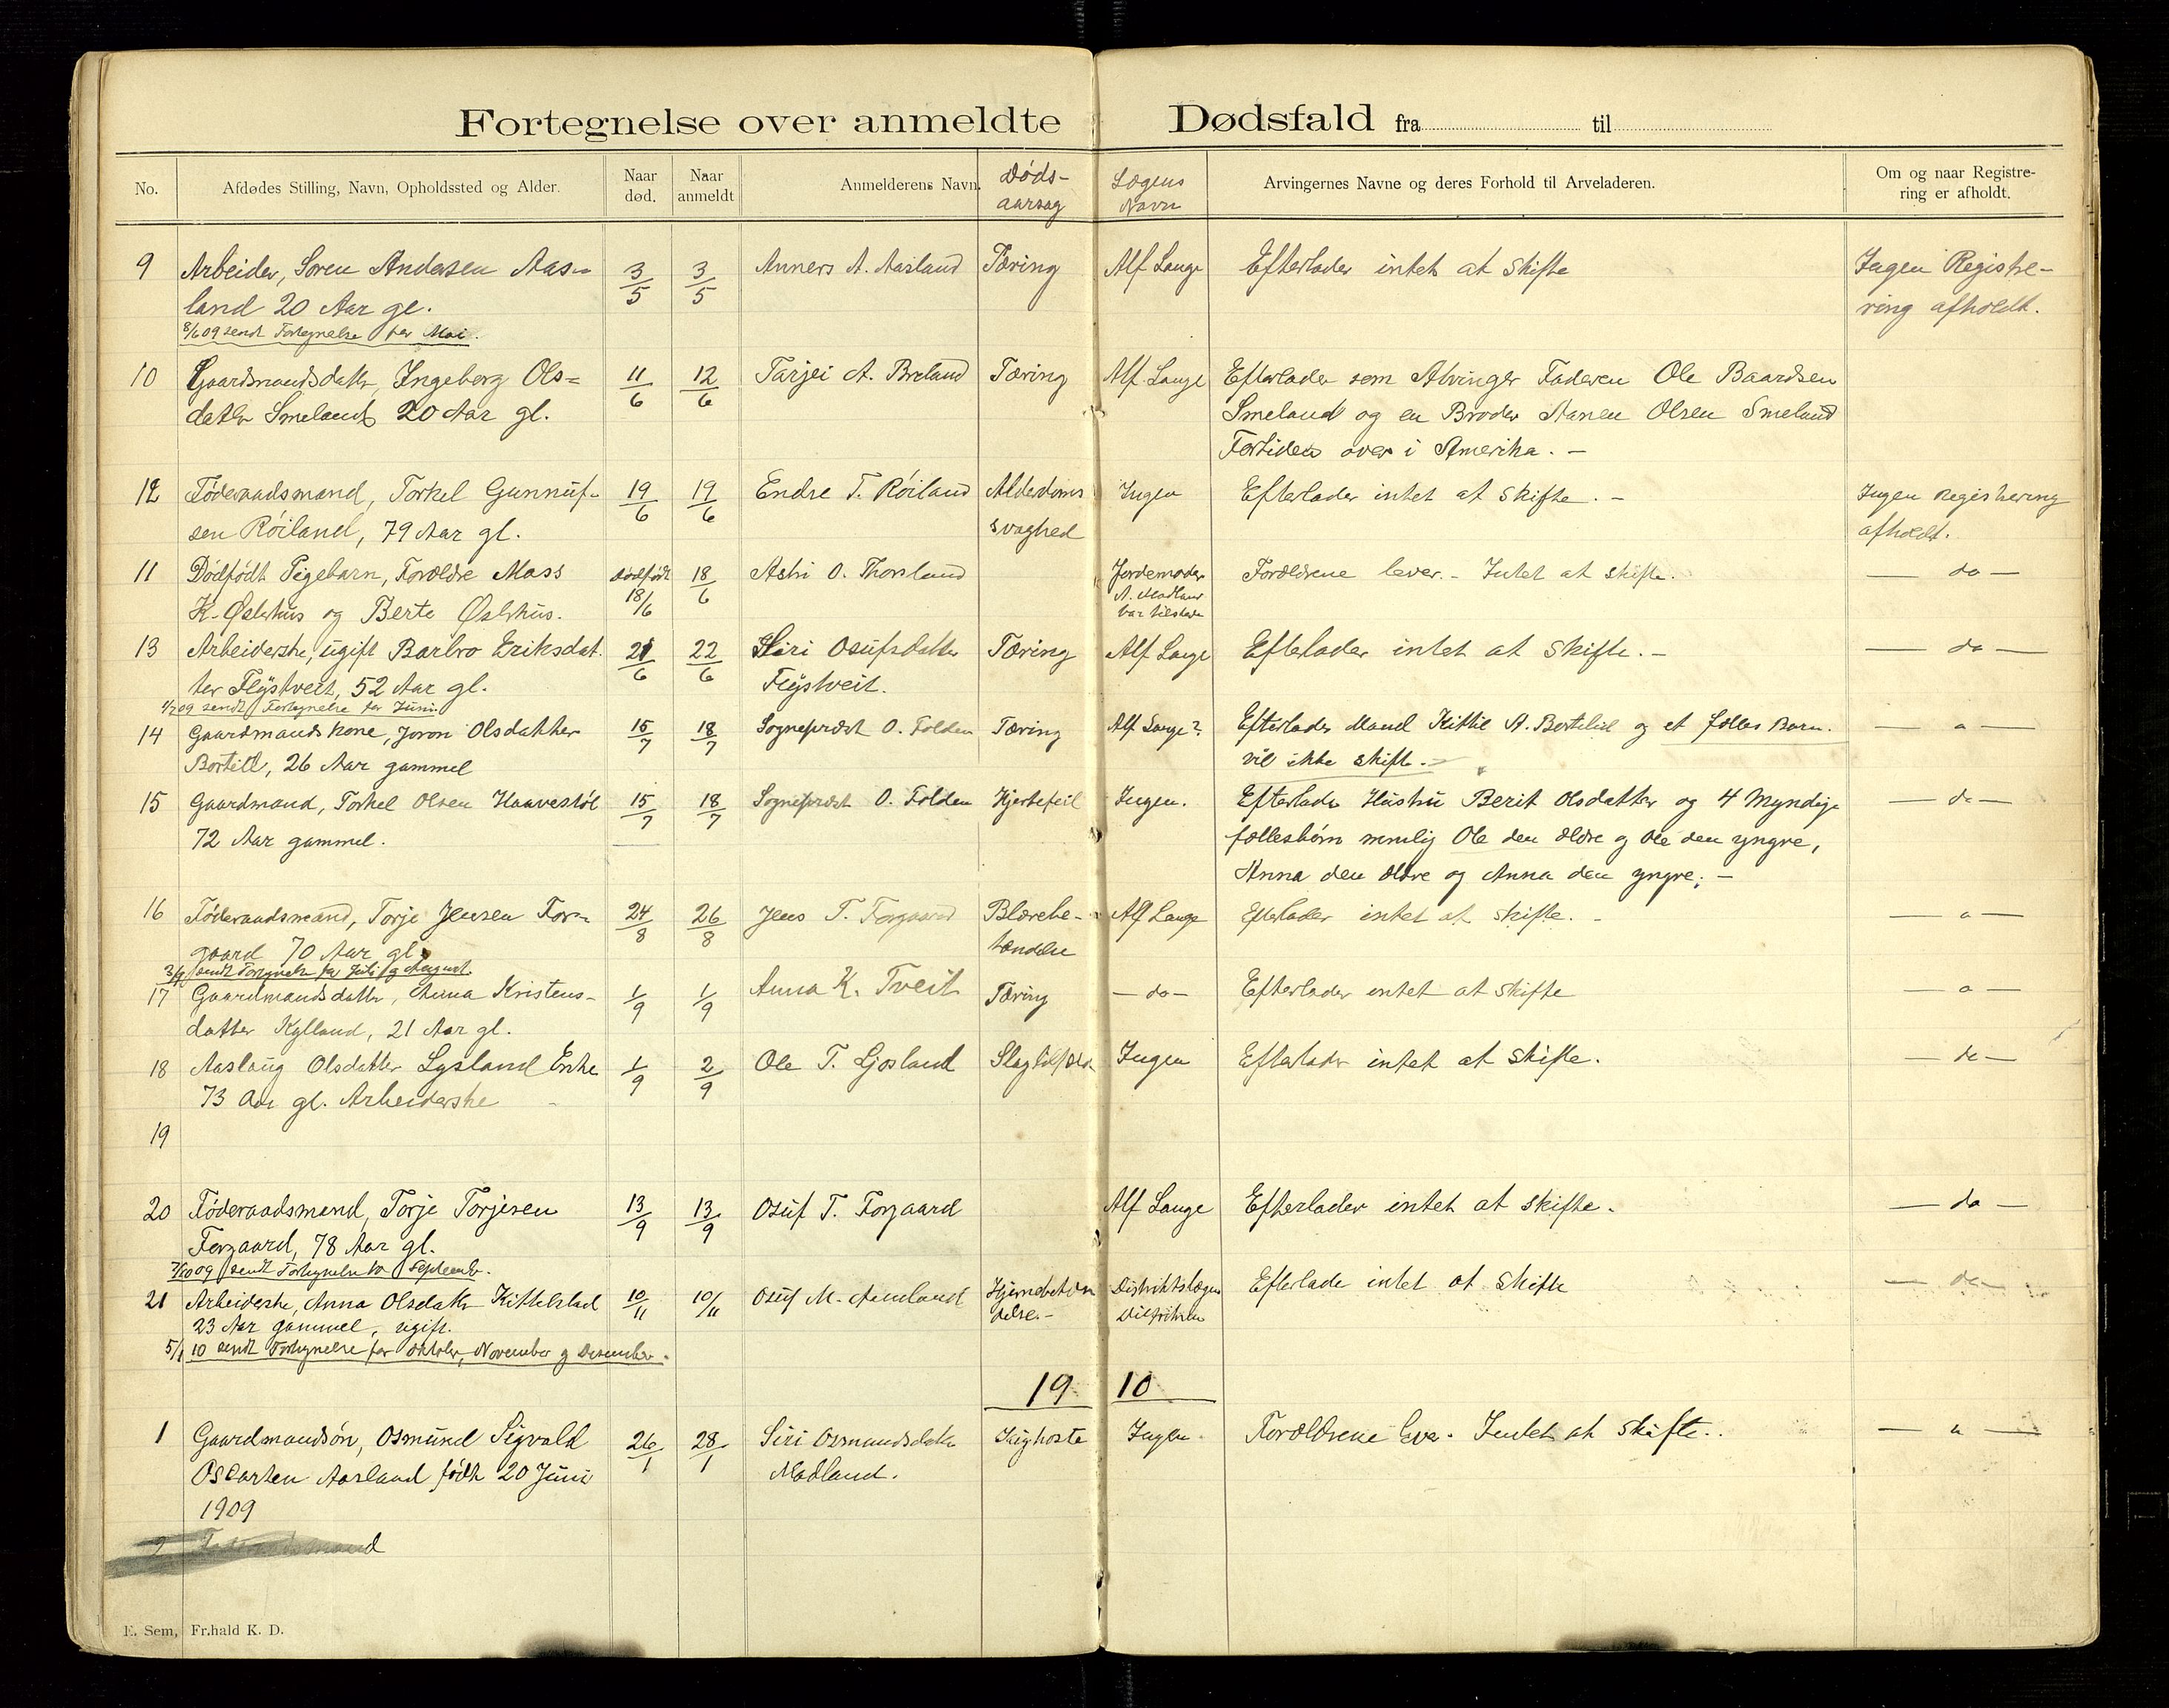 Fortegnelse over anmeldte Dødsfald fra til
No. Afdødes Stilling, Navn, Opholdssted og Alder. Naar død. Naar anmeldt Anmelderens Navn. Døds- aarsag Lægens Navn Arvingernes Navne og deres Forhold til Arveladeren. Om og naar Registre- ring er afholdt.
9 Arbeider, Soren Andersen Aas- 3/5 3/5 Anners A. Aasland Tæring Alf Lange Efterlader intet at skifte Ingen Registre-
land 20 Aar gl. ring afholdt.
8/6 09 sendt Fortegnelse for Mai.
10 Gaardmandsdatter, Ingeborg Ols= 11/6 12/6 Tarjei A. Breland Tæring Alf Lange Efterlader som Arvinger Faderen Ole Baardsen
datter Smeland 20 Aar gl. Smeland og en Broder Aanen Olsen Smeland
Fortiden over i Amerika. -
12 Føderaadsmand, Torkel Gunnuf- 19/6 19/6 Endre T. Røiland Alderdoms Ingen Efterlader intet at skifte. - Ingen registrering
sen Røiland, 79 Aar gl. svaghed afholdt.
11 Dødfødt Pigebarn, Forældre Mass dødfødt 18/6 18/6 Astri O. Thorsland Jordemoder Forældrene lever. - Intet at skifte. - do -
K. Øslehus og Berte Øslehus. A. Madland
var tilstede
13 Arbeiderske, ugift Barbro Eriksdat- 21/6 22/6 Siri Osufsdatter Tæring Alf Lange Efterlader intet at skifte. - - do -
ter Flystveit, 52 Aar gl. Flystveit.
1/7 09 sendt Fortegnelse for Juni
14 Gaardmandskone, Joron Olsdatter 15/7 18/7 Sogneprest O. Folden Tæring Alf Lange? Efterlader Mand Kittil A. Bortelid og et fælles Barn. - " -
Bortelid, 26 Aar gammel vil ikke skifte. -
15 Gaardmand, Torkel Olsen Haavestøl 15/7 18/7 Sogneprest O. Folden Hjertefeil Ingen. Efterlader Hustru Berit Olsdatter og 4 Myndige - do -
72 Aar gammel. fællesbørn nemlig Ole den ældre og Ole den yngre,
Anna den ældre og Anna den yngre. -
16 Føderaadsmand, Torje Jensen For- 24/8 26/8 Jens T. Forgaard Blærebe- Alf Lange Efterlader intet at skifte. - - " -
gaard 70 Aar gl. tændelse
3/9 sendt Fortegnelse for Juli og August.
17 Gaardmandsdatter, Anna Kristens- 1/9 1/9 Anna K. Tveit Tæring - do - Efterlader intet at skifte - " -
datter Kylland, 21 Aar gl.
18 Aaslaug Olsdatter Lysland Enke 1/9 2/9 Ole T. Ljosland Slagtilfæl Ingen Efterlader intet at skifte. - do -
73 Aar gl. Arbeiderske
19
20 Føderaadsmand, Torje Torjesen 13/9 13/9 Osuf T. Forgaard Alf Lange Efterlader intet at skifte. - do -
Forgaard, 78 Aar gl.
7/10 09 sendt Fortegnelse for Septemb.
21 Arbeiderske, Anna Olsdatter Kittelslad 10/11 10/11 Osuf M. Hjernebetæn Distriktslæge Efterlader intet at skifte - do -
23 Aar gammel, ugift. delse. -
5/1 10 sendt Fortegnelse for Oktober, November og Desember.
19 10
1 Gaardmandsøn, Osmund Sigvald 26/1 28/1 Siri Osmundsdatter Kighoste Ingen Forældrene lever. Intet at skifte. - " -
Oscarsen Aasland født 20 Juni Madland.
1909
2
E. Sem, Fr.hald K. D.